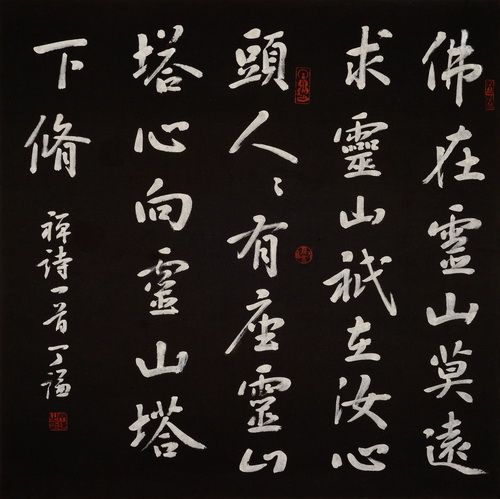 佛在霊山莫遠
求靈山祇在汝心
頭人〻有座靈山
塔心向霊山塔
下脩
禅詩一首丁謙